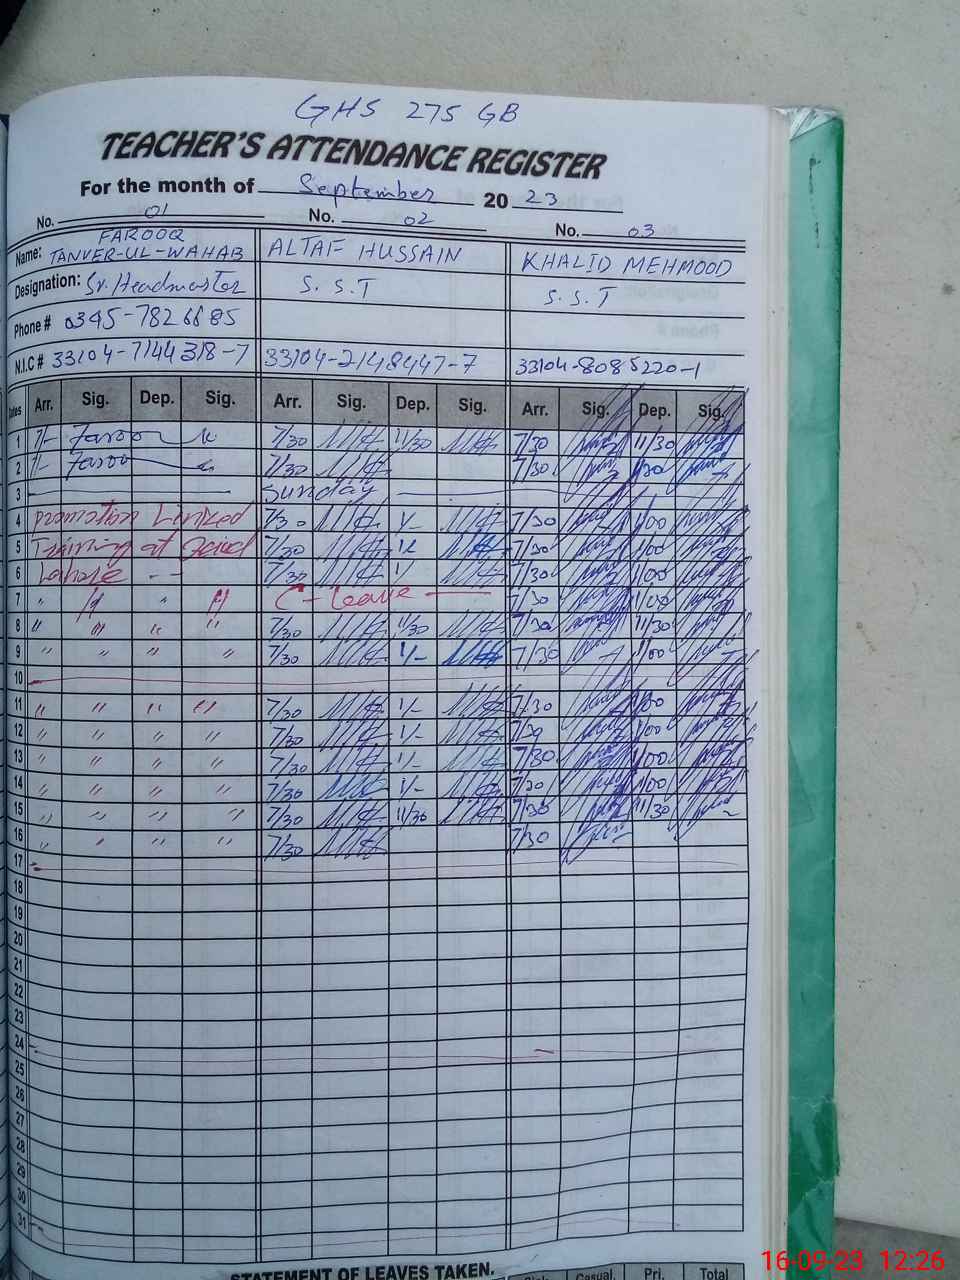 GHS 275 GB
TEACHER'S ATTENDANCE REGISTER
For the month of September 20 23
No. 01 No. 02 No. 03
Name: FAROOQ TANVER-UL-WAHAB ALTAF HUSSAIN KHALID MEHMOOD
Designation: Sr. Headmaster S.S.T S.S.T
Phone # 0345-7826685
N.I.C # 33104-7144318-7 33104-2148447-7 33104-8085220-1
Dates Arr. Sig. Dep. Sig. Arr. Sig. Dep. Sig. Arr. Sig. Dep. Sig.
1 7/- Farooq 7/30 11/30 7/30 11/30
2 7/- Farooq 7/30 7/30
3 Sunday
4 Promotion Linked 7/30 1/- 7/30 1/00
5 Training at 7/30 7/30 1/00
6 Lahore -- 7/30 1/- 7/30 1/00
7 " " C-Leave 7/30 1/00
8 " " " " 7/30 11/30 7/30 11/30
9 " " " " 7/30 1/- 7/30 1/00
10
11 " " " " 7/30 1/- 7/30 1/00
12 " " " " 7/30 1/- 7/30 1/00
13 " " " " 7/30 1/- 7/30 1/00
14 " " " " 7/30 1/- 7/30 1/00
15 " " " " 7/30 11/30 7/30 11/30
16 " " " " 7/30 7/30
17
18
19
20
21
22
23
24
25
26
27
28
29
30
31
STATEMENT OF LEAVES TAKEN.
Casual. Pri. Total
16-09-23 12:26